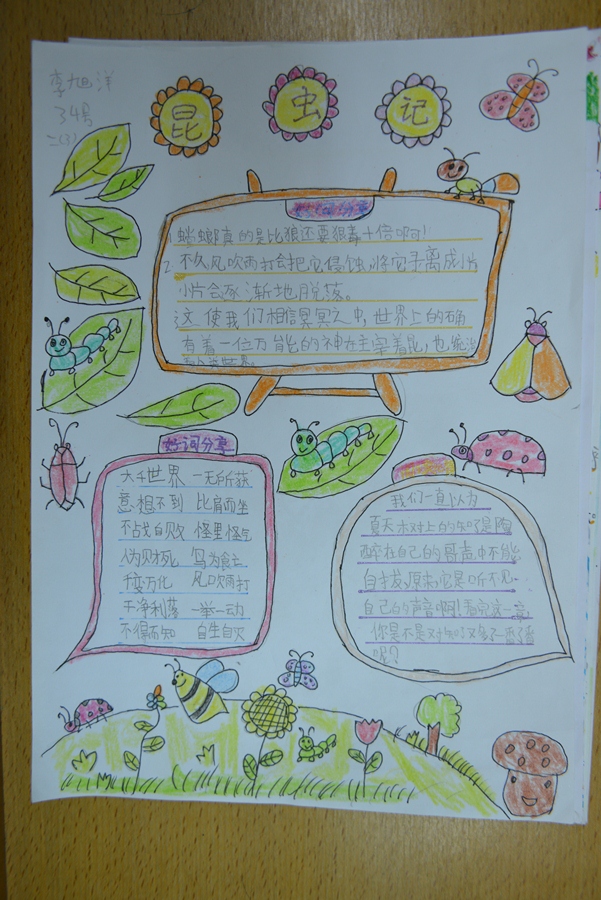 李旭洋
34号
二(3)
昆 虫 记
好句分享
1. 蟑螂真的是比狼还要狠毒十倍啊!
2. 不久风吹雨打会把它侵蚀,将它手离成片
小片会逐渐地脱落。
这使我们相信冥冥之中,世界上的确
有着一位万能的神在主宰着昆,也统治
着人类世界。
好词分享
大千世界 一无所获
意想不到 比肩而坐
不战自败 怪里怪气
人为财死 鸟为食亡
千变万化 风吹雨打
干净利落 一举一动
不得而知 自生自灭
我们一直以为
夏天木对上的知了是陶
醉在自己的哥声中不能
自拔,原来它是听不见
自己的声音啊!看完这一章
你是不是对知了又多了一番了解
呢?